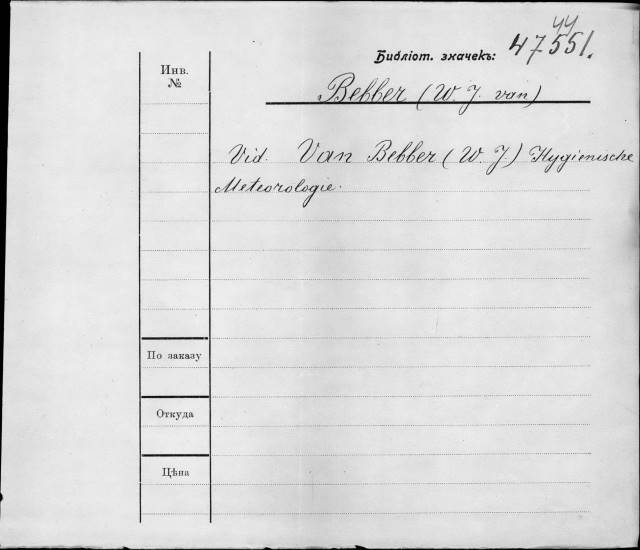 44
Библіот. значекъ: 47551.
Инв.
№
Bebber (W. J. van)
Vid. Van Bebber (W. J.) Hygienische
Meteorologie.
По заказу
Откуда
Цѣна